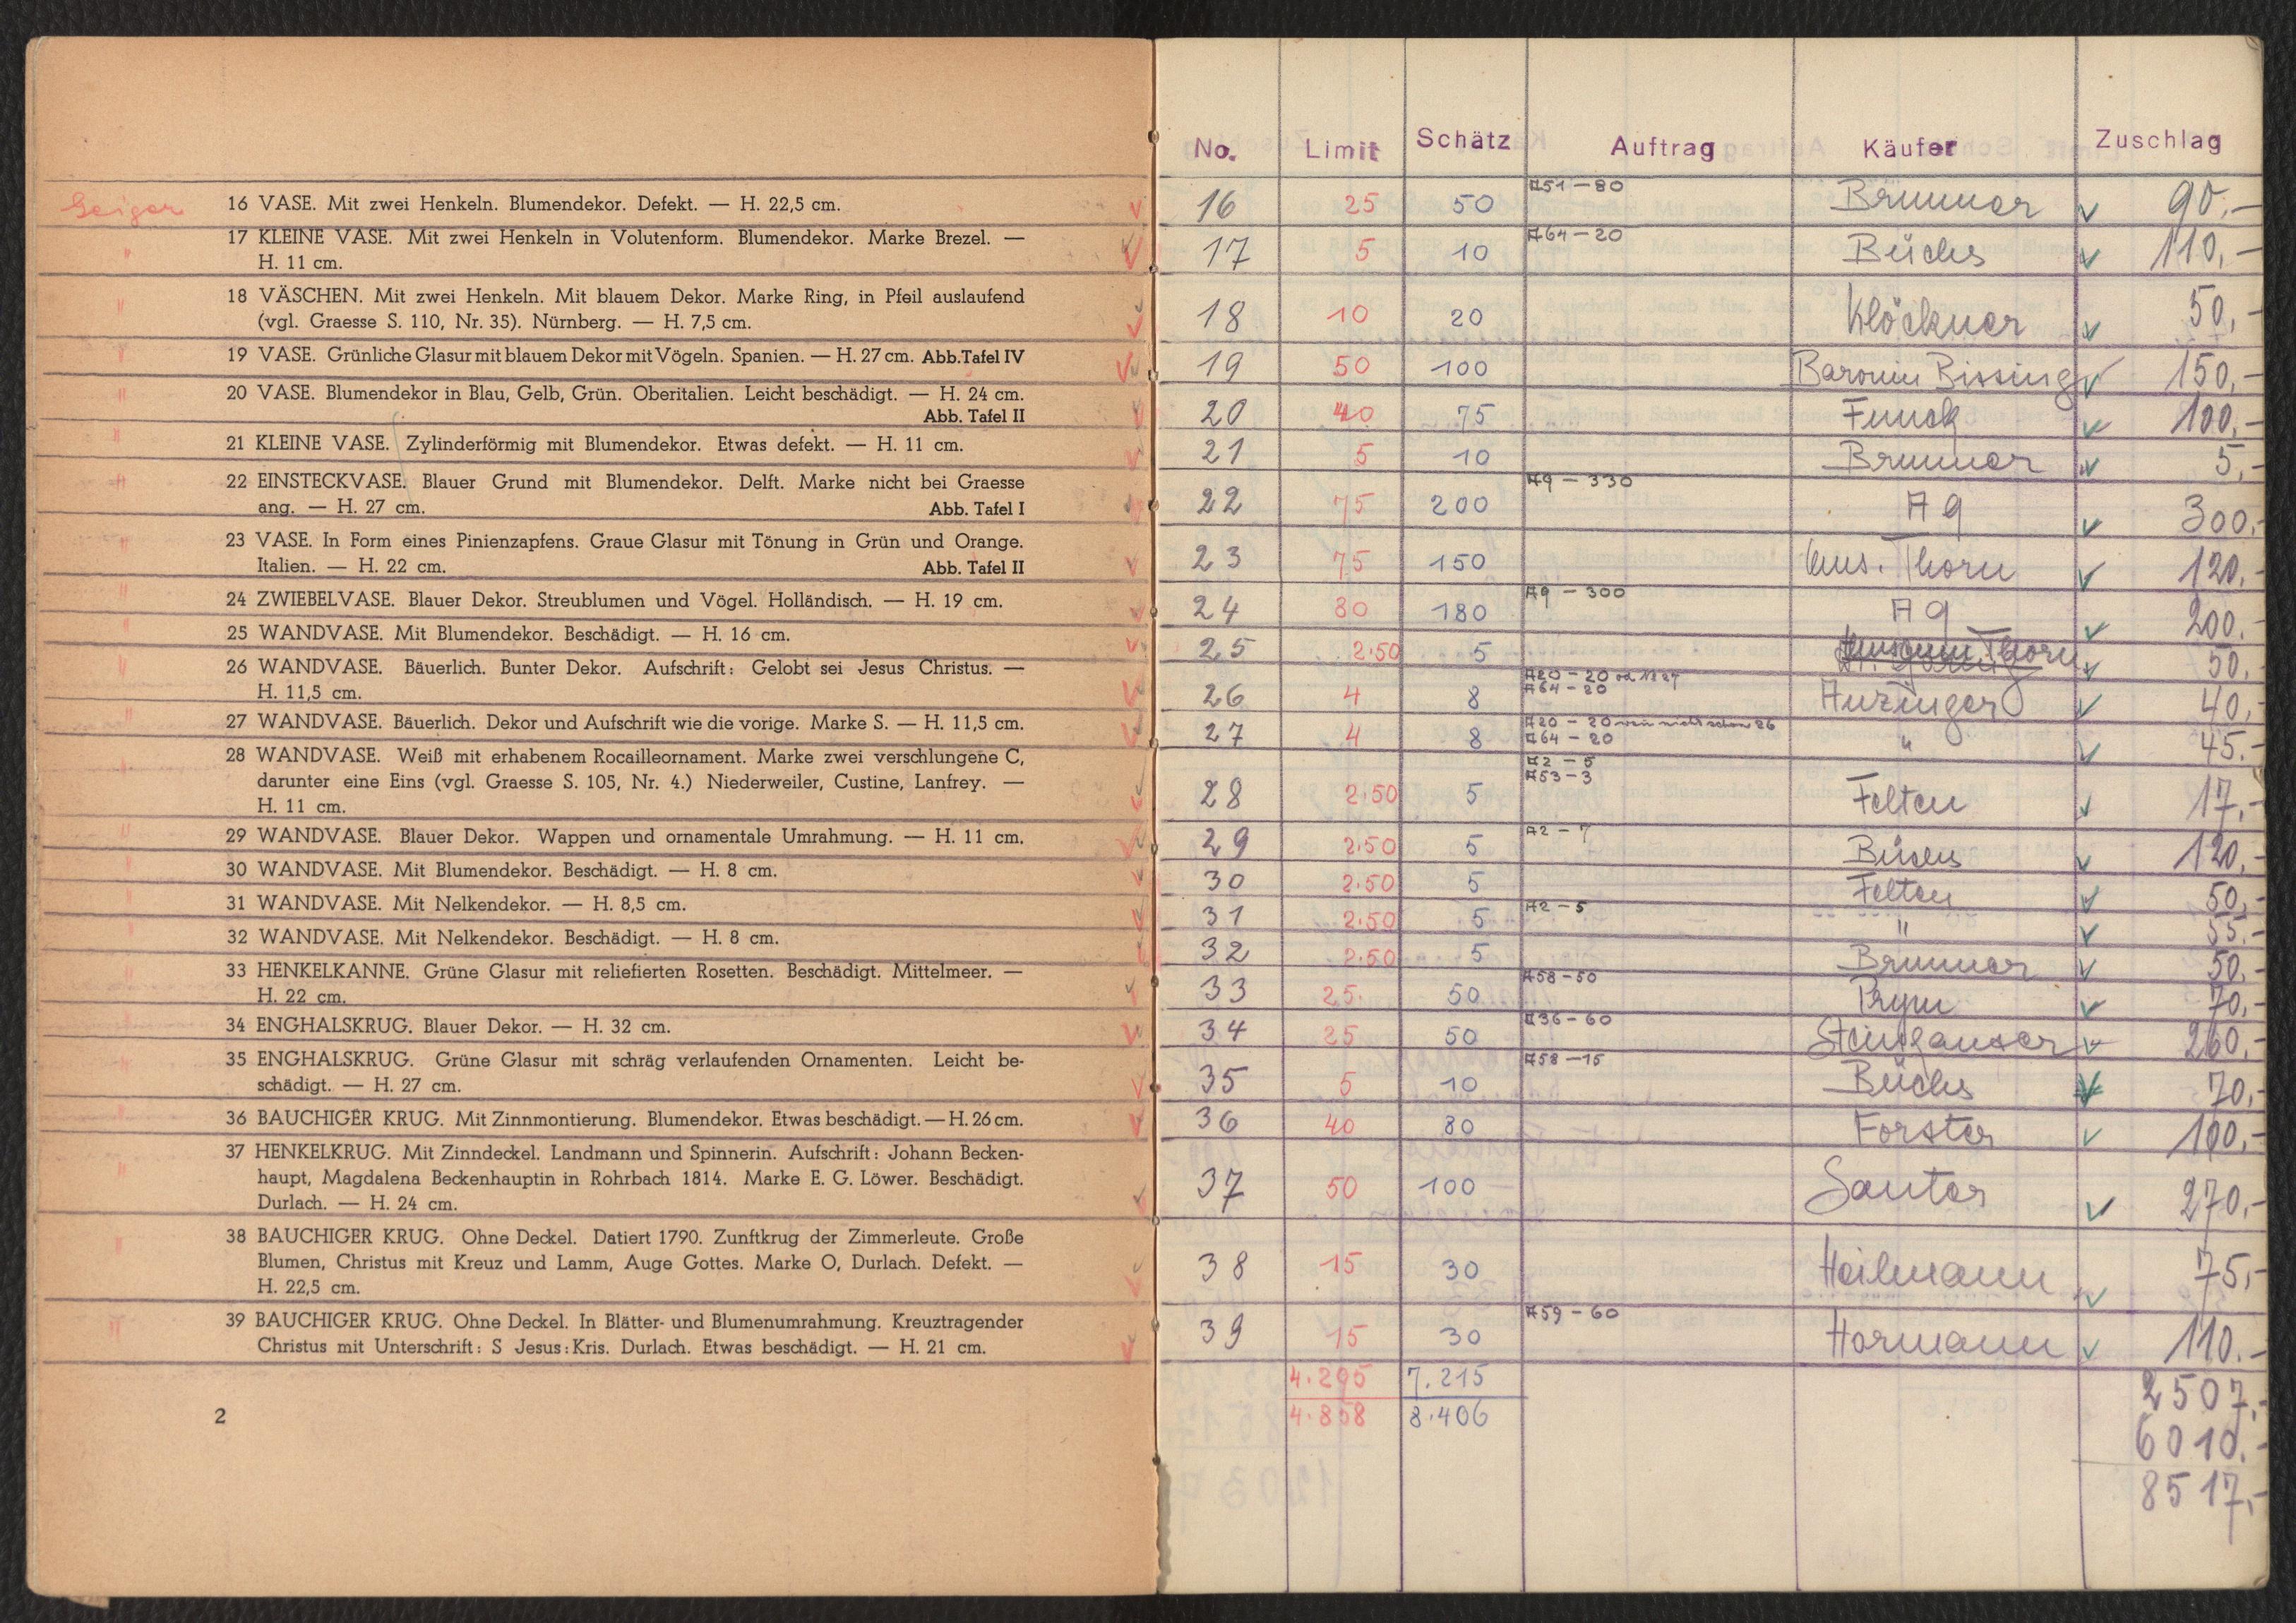 Geiger
16 VASE. Mit zwei Henkeln. Blumendekor. Defekt. — H. 22,5 cm.
17 KLEINE VASE. Mit zwei Henkeln in Volutenform. Blumendekor. Marke Brezel. —
H. 11 cm.
18 VÄSCHEN. Mit zwei Henkeln. Mit blauem Dekor. Marke Ring, in Pfeil auslaufend
(vgl. Graesse S. 110, Nr. 35). Nürnberg. — H. 7,5 cm.
19 VASE. Grünliche Glasur mit blauem Dekor mit Vögeln. Spanien. — H. 27 cm. Abb. Tafel IV
20 VASE. Blumendekor in Blau, Gelb, Grün. Oberitalien. Leicht beschädigt. — H. 24 cm.
Abb. Tafel II
21 KLEINE VASE. Zylinderförmig mit Blumendekor. Etwas defekt. — H. 11 cm.
22 EINSTECKVASE. Blauer Grund mit Blumendekor. Delft. Marke nicht bei Graesse
ang. — H. 27 cm. Abb. Tafel I
23 VASE. In Form eines Pinienzapfens. Graue Glasur mit Tönung in Grün und Orange.
Italien. — H. 22 cm. Abb. Tafel II
24 ZWIEBELVASE. Blauer Dekor. Streublumen und Vögel. Holländisch. — H. 19 cm.
25 WANDVASE. Mit Blumendekor. Beschädigt. — H. 16 cm.
26 WANDVASE. Bäuerlich. Bunter Dekor. Aufschrift: Gelobt sei Jesus Christus. —
H. 11,5 cm.
27 WANDVASE. Bäuerlich. Dekor und Aufschrift wie die vorige. Marke S. — H. 11,5 cm.
28 WANDVASE. Weiß mit erhabenem Rocailleornament. Marke zwei verschlungene C,
darunter eine Eins (vgl. Graesse S. 105, Nr. 4.) Niederweiler, Custine, Lanfrey. —
H. 11 cm.
29 WANDVASE. Blauer Dekor. Wappen und ornamentale Umrahmung. — H. 11 cm.
30 WANDVASE. Mit Blumendekor. Beschädigt. — H. 8 cm.
31 WANDVASE. Mit Nelkendekor. — H. 8,5 cm.
32 WANDVASE. Mit Nelkendekor. Beschädigt. — H. 8 cm.
33 HENKELKANNE. Grüne Glasur mit reliefierten Rosetten. Beschädigt. Mittelmeer. —
H. 22 cm.
34 ENGHALSKRUG. Blauer Dekor. — H. 32 cm.
35 ENGHALSKRUG. Grüne Glasur mit schräg verlaufenden Ornamenten. Leicht be-
schädigt. — H. 27 cm.
36 BAUCHIGER KRUG. Mit Zinnmontierung. Blumendekor. Etwas beschädigt. — H. 26 cm.
37 HENKELKRUG. Mit Zinndeckel. Landmann und Spinnerin. Aufschrift: Johann Becken-
haupt, Magdalena Beckenhauptin in Rohrbach 1814. Marke E. G. Löwer. Beschädigt.
Durlach. — H. 24 cm.
38 BAUCHIGER KRUG. Ohne Deckel. Datiert 1790. Zunftkrug der Zimmerleute. Große
Blumen, Christus mit Kreuz und Lamm, Auge Gottes. Marke O, Durlach. Defekt. —
H. 22,5 cm.
39 BAUCHIGER KRUG. Ohne Deckel. In Blätter- und Blumenumrahmung. Kreuztragender
Christus mit Unterschrift: S Jesus: Kris. Durlach. Etwas beschädigt. — H. 21 cm.
2
No. Limit Schätz Auftrag Käufer Zuschlag
16 25 50 A51 – 80 Brunner 90,–
17 5 10 A64 – 20 Büchs 110,–
18 10 20 Klöckner 50,–
19 50 100 Baronin Bissing 150,–
20 40 75 Funck 100,–
21 5 10 Brunner 5,–
22 75 200 A9 – 330 A9 300,–
23 75 150 Mus. Thorn 120,–
24 80 180 A9 – 300 A9 200,–
25 2.50 5 Museum Thorn 50,–
26 4 8 A20 – 20 od. N 27
A64 – 20 Anzinger 40,–
27 4 8 A20 – 20 wenn nicht schon 26
A64 – 20 " 45,–
28 2.50 5 A2 – 5
A53 – 3 Felten 17,–
29 2.50 5 A2 – 7 Büchs 120,–
30 2.50 5 Felten 50,–
31 2.50 5 A2 – 5 " 55,–
32 2.50 5 Brunner 50,–
33 25 50 A58 – 50 Prym 70,–
34 25 50 A36 – 60 Steinhauser 260,–
35 5 10 A58 – 15 Büchs 70,–
36 40 80 Forster 100,–
37 50 100 Sauter 270,–
38 15 30 Heilmann 75,–
39 15 30 A59 – 60 Hormann 110.–
4.295 7.215 2507,–
4.858 8.406 6010.–
8517,–